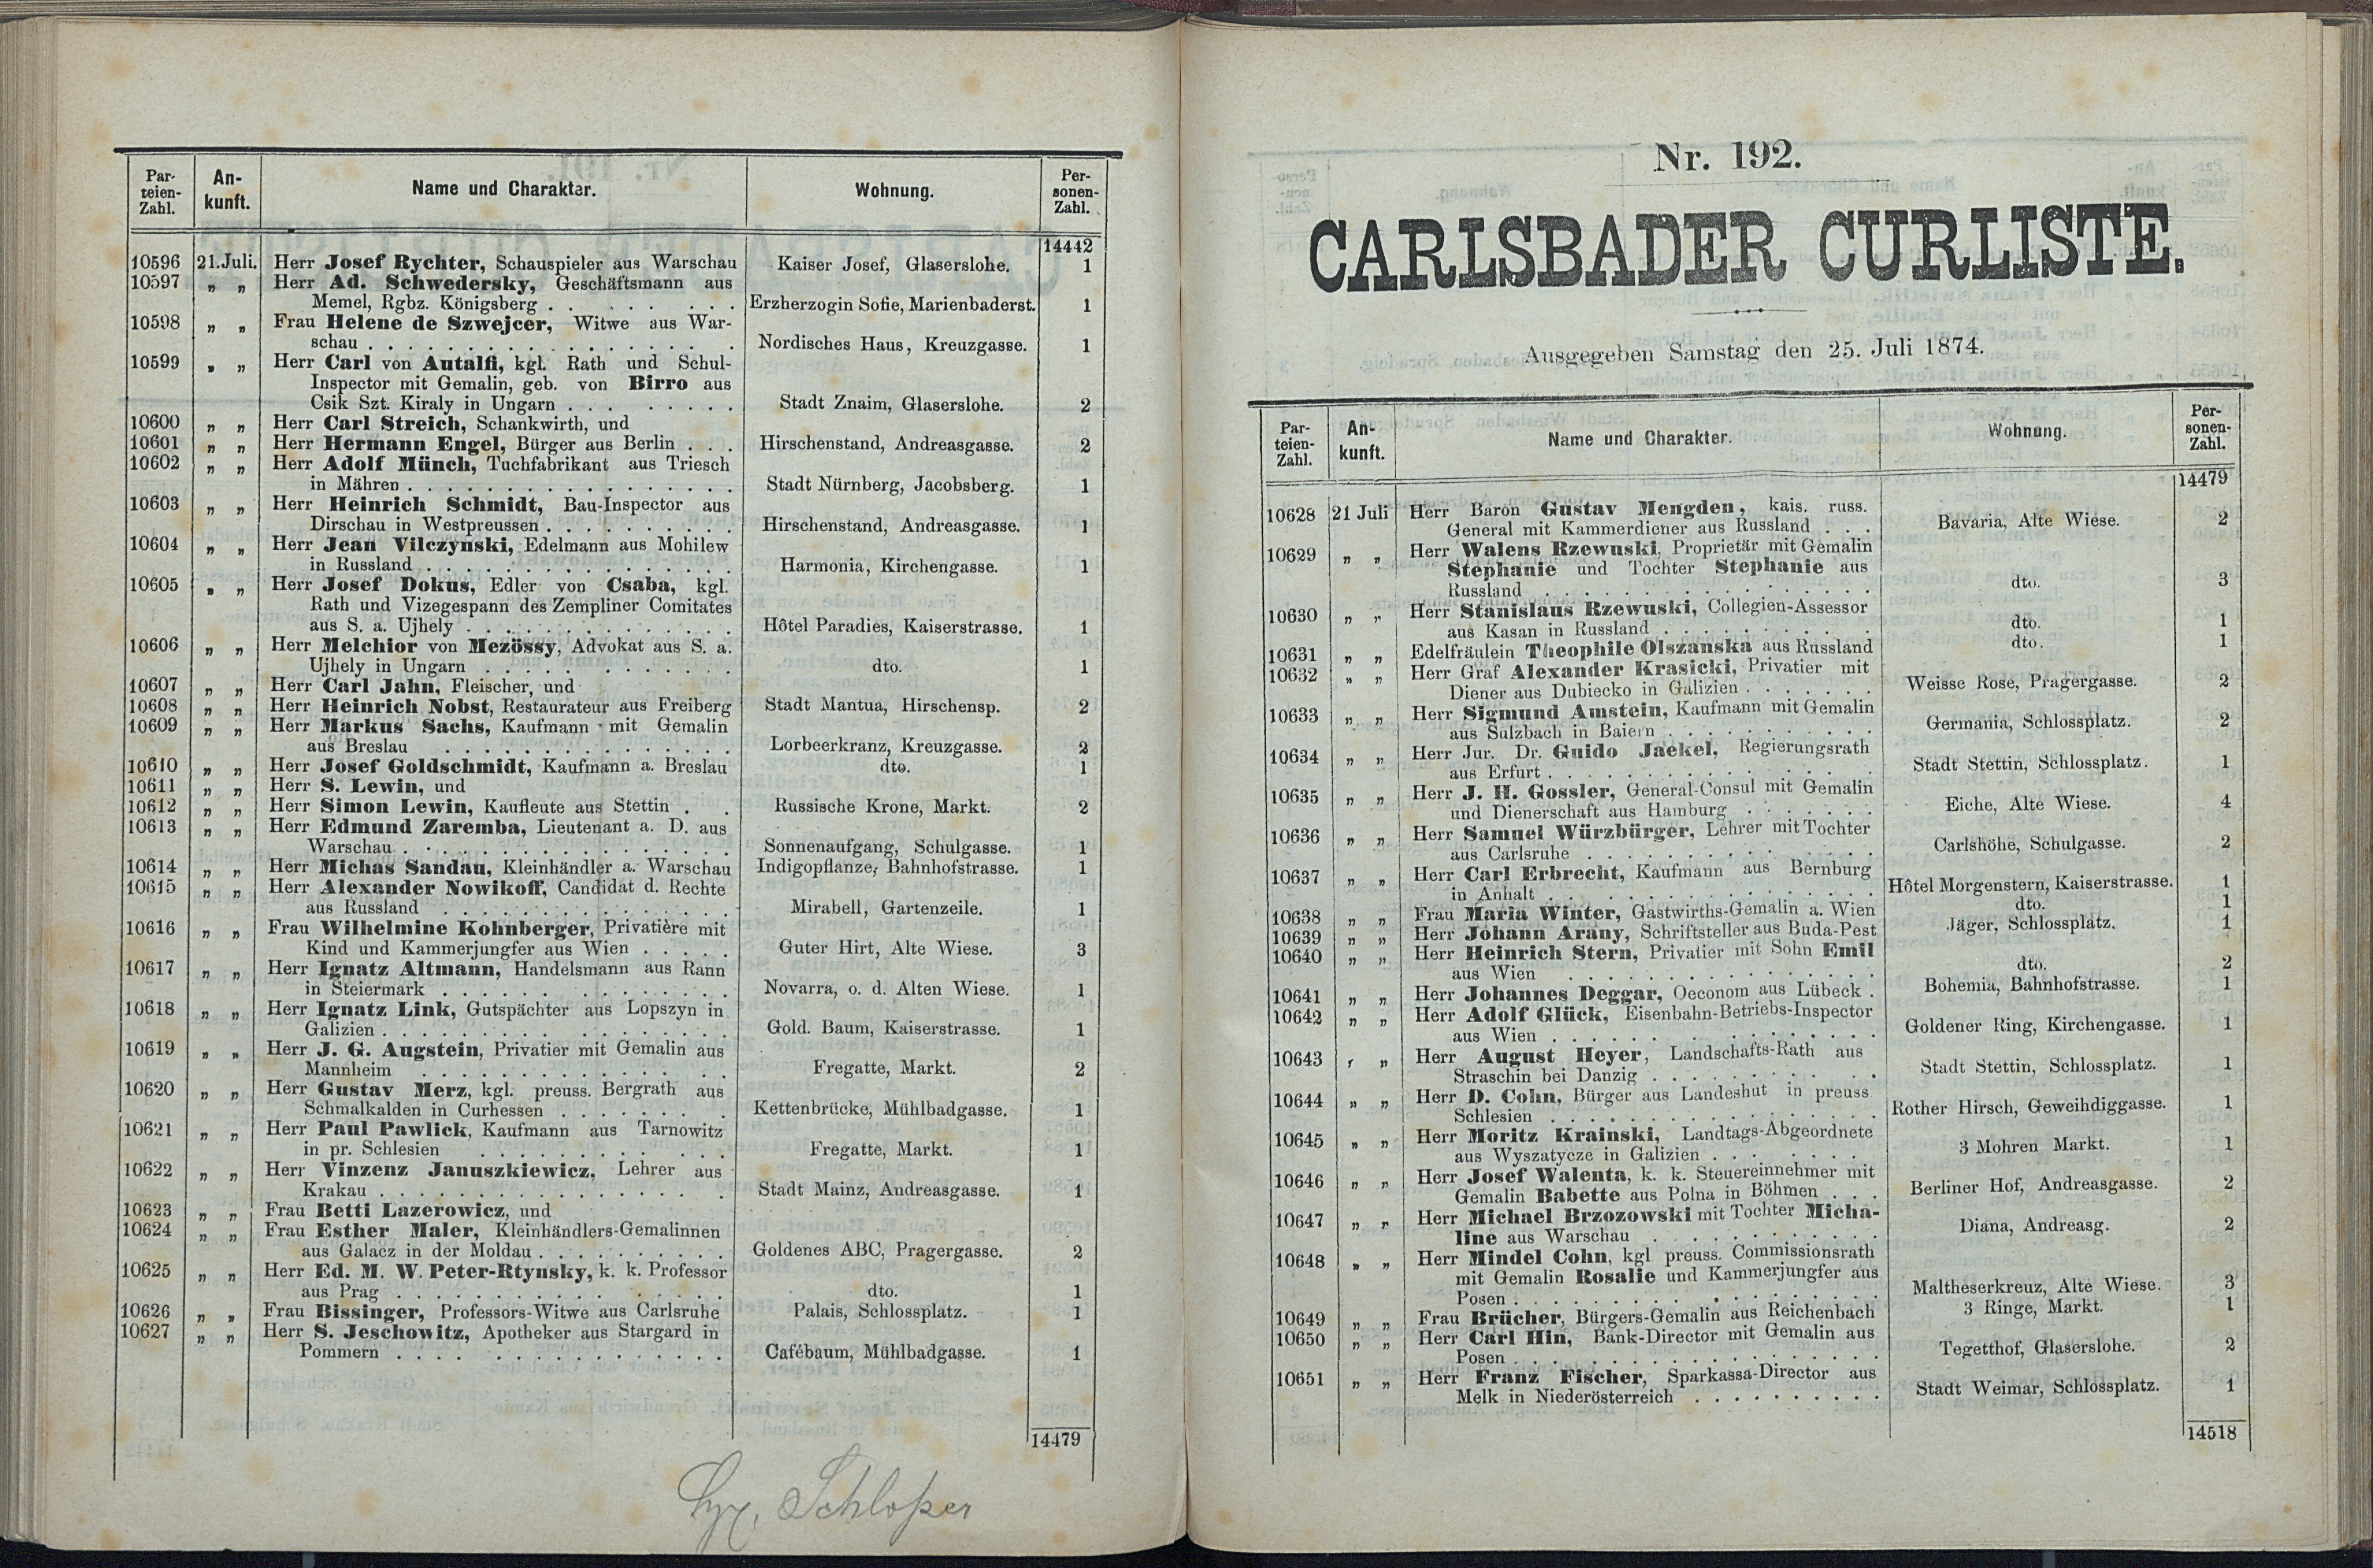 Par-
teien-
Zahl.
An-
kunft.
Name und Charakter.
Wohnung.
Per-
sonen-
Zahl.
14442
10596 21.Juli. Herr Josef Rychter, Schauspieler aus Warschau Kaiser Josef, Glaserslohe. 1
10597 „ „ Herr Ad. Schwedersky, Geschäftsmann aus
Memel, Rgbz. Königsberg . . . . . . . . Erzherzogin Sofie, Marienbaderst. 1
10598 „ „ Frau Helene de Szwejcer, Witwe aus War-
schau . . . . . . . . . . . . . . . . Nordisches Haus, Kreuzgasse. 1
10599 „ „ Herr Carl von Antalfi, kgl. Rath und Schul-
Inspector mit Gemalin, geb. von Birro aus
Csik Szt. Kiraly in Ungarn . . . . . . . . Stadt Znaim, Glaserslohe. 2
10600 „ „ Herr Carl Streich, Schankwirth, und
10601 „ „ Herr Hermann Engel, Bürger aus Berlin . . . Hirschenstand, Andreasgasse. 2
10602 „ „ Herr Adolf Münch, Tuchfabrikant aus Triesch
in Mähren . . . . . . . . . . . . . . Stadt Nürnberg, Jacobsberg. 1
10603 „ „ Herr Heinrich Schmidt, Bau-Inspector aus
Dirschau in Westpreussen . . . . . . . . Hirschenstand, Andreasgasse. 1
10604 „ „ Herr Jean Vilczynski, Edelmann aus Mohilew
in Russland . . . . . . . . . . . . . . Harmonia, Kirchengasse. 1
10605 „ „ Herr Josef Dokus, Edler von Csaba, kgl.
Rath und Vizegespann des Zempliner Comitates
aus S. a. Ujhely . . . . . . . . . . . . Hôtel Paradies, Kaiserstrasse. 1
10606 „ „ Herr Melchior von Mezössy, Advokat aus S. a.
Ujhely in Ungarn . . . . . . . . . . . dto. 1
10607 „ „ Herr Carl Jahn, Fleischer, und
10608 „ „ Herr Heinrich Nobst, Restaurateur aus Freiberg Stadt Mantua, Hirschensp. 2
10609 „ „ Herr Markus Sachs, Kaufmann mit Gemalin
aus Breslau . . . . . . . . . . . . . Lorbeerkranz, Kreuzgasse. 2
10610 „ „ Herr Josef Goldschmidt, Kaufmann a. Breslau dto. 1
10611 „ „ Herr S. Lewin, und
10612 „ „ Herr Simon Lewin, Kaufleute aus Stettin . . Russische Krone, Markt. 2
10613 „ „ Herr Edmund Zaremba, Lieutenant a. D. aus
Warschau . . . . . . . . . . . . . . . Sonnenaufgang, Schulgasse. 1
10614 „ „ Herr Michas Sandau, Kleinhändler a. Warschau Indigopflanze, Bahnhofstrasse. 1
10615 „ „ Herr Alexander Nowikoff, Candidat d. Rechte
aus Russland . . . . . . . . . . . . . Mirabell, Gartenzeile. 1
10616 „ „ Frau Wilhelmine Kohnberger, Privatière mit
Kind und Kammerjungfer aus Wien . . . . . Guter Hirt, Alte Wiese. 3
10617 „ „ Herr Ignatz Altmann, Handelsmann aus Rann
in Steiermark . . . . . . . . . . . . . Novarra, o. d. Alten Wiese. 1
10618 „ „ Herr Ignatz Link, Gutspächter aus Lopszyn in
Galizien . . . . . . . . . . . . . . . Gold. Baum, Kaiserstrasse. 1
10619 „ „ Herr J. G. Augstein, Privatier mit Gemalin aus
Mannheim . . . . . . . . . . . . . . Fregatte, Markt. 2
10620 „ „ Herr Gustav Merz, kgl. preuss. Bergrath aus
Schmalkalden in Curhessen . . . . . . . . Kettenbrücke, Mühlbadgasse. 1
10621 „ „ Herr Paul Pawlick, Kaufmann aus Tarnowitz
in pr. Schlesien . . . . . . . . . . . . Fregatte, Markt. 1
10622 „ „ Herr Vinzenz Januszkiewicz, Lehrer aus
Krakau . . . . . . . . . . . . . . . Stadt Mainz, Andreasgasse. 1
10623 „ „ Frau Betti Lazerowicz, und
10624 „ „ Frau Esther Maler, Kleinhändlers-Gemalinnen
aus Galacz in der Moldau . . . . . . . . . Goldenes ABC, Pragergasse. 2
10625 „ „ Herr Ed. M. W. Peter-Rtynsky, k. k. Professor
aus Prag . . . . . . . . . . . . . . dto. 1
10626 „ „ Frau Bissinger, Professors-Witwe aus Carlsruhe Palais, Schlossplatz. 1
10627 „ „ Herr S. Jeschowitz, Apotheker aus Stargard in
Pommern . . . . . . . . . . . . . . Cafébaum, Mühlbadgasse. 1
14479
Nr. 192.
CARLSBADER CURLISTE.
Ausgegeben Samstag den 25. Juli 1874.
Par-
teien-
Zahl.
An-
kunft.
Name und Charakter.
Wohnung.
Per-
sonen-
Zahl.
14479
10628 21 Juli Herr Baron Gustav Mengden, kais. russ.
General mit Kammerdiener aus Russland . . . Bavaria, Alte Wiese. 2
10629 „ „ Herr Walens Rzewuski, Proprietär mit Gemalin
Stephanie und Tochter Stephanie aus
Russland . . . . . . . . . . . . . . dto. 3
10630 „ „ Herr Stanislaus Rzewuski, Collegien-Assessor
aus Kasan in Russland . . . . . . . . . dto. 1
10631 „ „ Edelfräulein Theophile Olszanska aus Russland dto. 1
10632 „ „ Herr Graf Alexander Krasicki, Privatier mit
Diener aus Dubiecko in Galizien . . . . . . . Weisse Rose, Pragergasse. 2
10633 „ „ Herr Sigmund Amstein, Kaufmann mit Gemalin
aus Sulzbach in Baiern . . . . . . . . . . Germania, Schlossplatz. 2
10634 „ „ Herr Jur. Dr. Guido Jaekel, Regierungsrath
aus Erfurt . . . . . . . . . . . . . . Stadt Stettin, Schlossplatz. 1
10635 „ „ Herr J. H. Gossler, General-Consul mit Gemalin
und Dienerschaft aus Hamburg . . . . . . . Eiche, Alte Wiese. 4
10636 „ „ Herr Samuel Würzbürger, Lehrer mit Tochter
aus Carlsruhe . . . . . . . . . . . . . Carlshöhe, Schulgasse. 2
10637 „ „ Herr Carl Erbrecht, Kaufmann aus Bernburg
in Anhalt . . . . . . . . . . . . . . Hôtel Morgenstern, Kaiserstrasse. 1
10638 „ „ Frau Maria Winter, Gastwirths-Gemalin a. Wien dto. 1
10639 „ „ Herr Johann Arany, Schriftsteller aus Buda-Pest Jäger, Schlossplatz. 1
10640 „ „ Herr Heinrich Stern, Privatier mit Sohn Emil
aus Wien . . . . . . . . . . . . . . dto. 2
10641 „ „ Herr Johannes Deggar, Oeconom aus Lübeck . Bohemia, Bahnhofstrasse. 1
10642 „ „ Herr Adolf Glück, Eisenbahn-Betriebs-Inspector
aus Wien . . . . . . . . . . . . . . Goldener Ring, Kirchengasse. 1
10643 „ „ Herr August Heyer, Landschafts-Rath aus
Straschin bei Danzig . . . . . . . . . . Stadt Stettin, Schlossplatz. 1
10644 „ „ Herr D. Cohn, Bürger aus Landeshut in preuss.
Schlesien . . . . . . . . . . . . . . Rother Hirsch, Geweihdiggasse. 1
10645 „ „ Herr Moritz Krainski, Landtags-Abgeordnete
aus Wyszatycze in Galizien . . . . . . . . 3 Mohren Markt. 1
10646 „ „ Herr Josef Walenta, k. k. Steuereinnehmer mit
Gemalin Babette aus Polna in Böhmen . . . Berliner Hof, Andreasgasse. 2
10647 „ „ Herr Michael Brzozowski mit Tochter Micha-
line aus Warschau . . . . . . . . . . . Diana, Andreasg. 2
10648 „ „ Herr Mindel Cohn, kgl preuss. Commissionsrath
mit Gemalin Rosalie und Kammerjungfer aus
Posen . . . . . . . . . . . . . . . Maltheserkreuz, Alte Wiese. 3
10649 „ „ Frau Brücher, Bürgers-Gemalin aus Reichenbach 3 Ringe, Markt. 1
10650 „ „ Herr Carl Hin, Bank-Director mit Gemalin aus
Posen . . . . . . . . . . . . . . . Tegetthof, Glaserslohe. 2
10651 „ „ Herr Franz Fischer, Sparkassa-Director aus
Melk in Niederösterreich . . . . . . . . Stadt Weimar, Schlossplatz. 1
14518